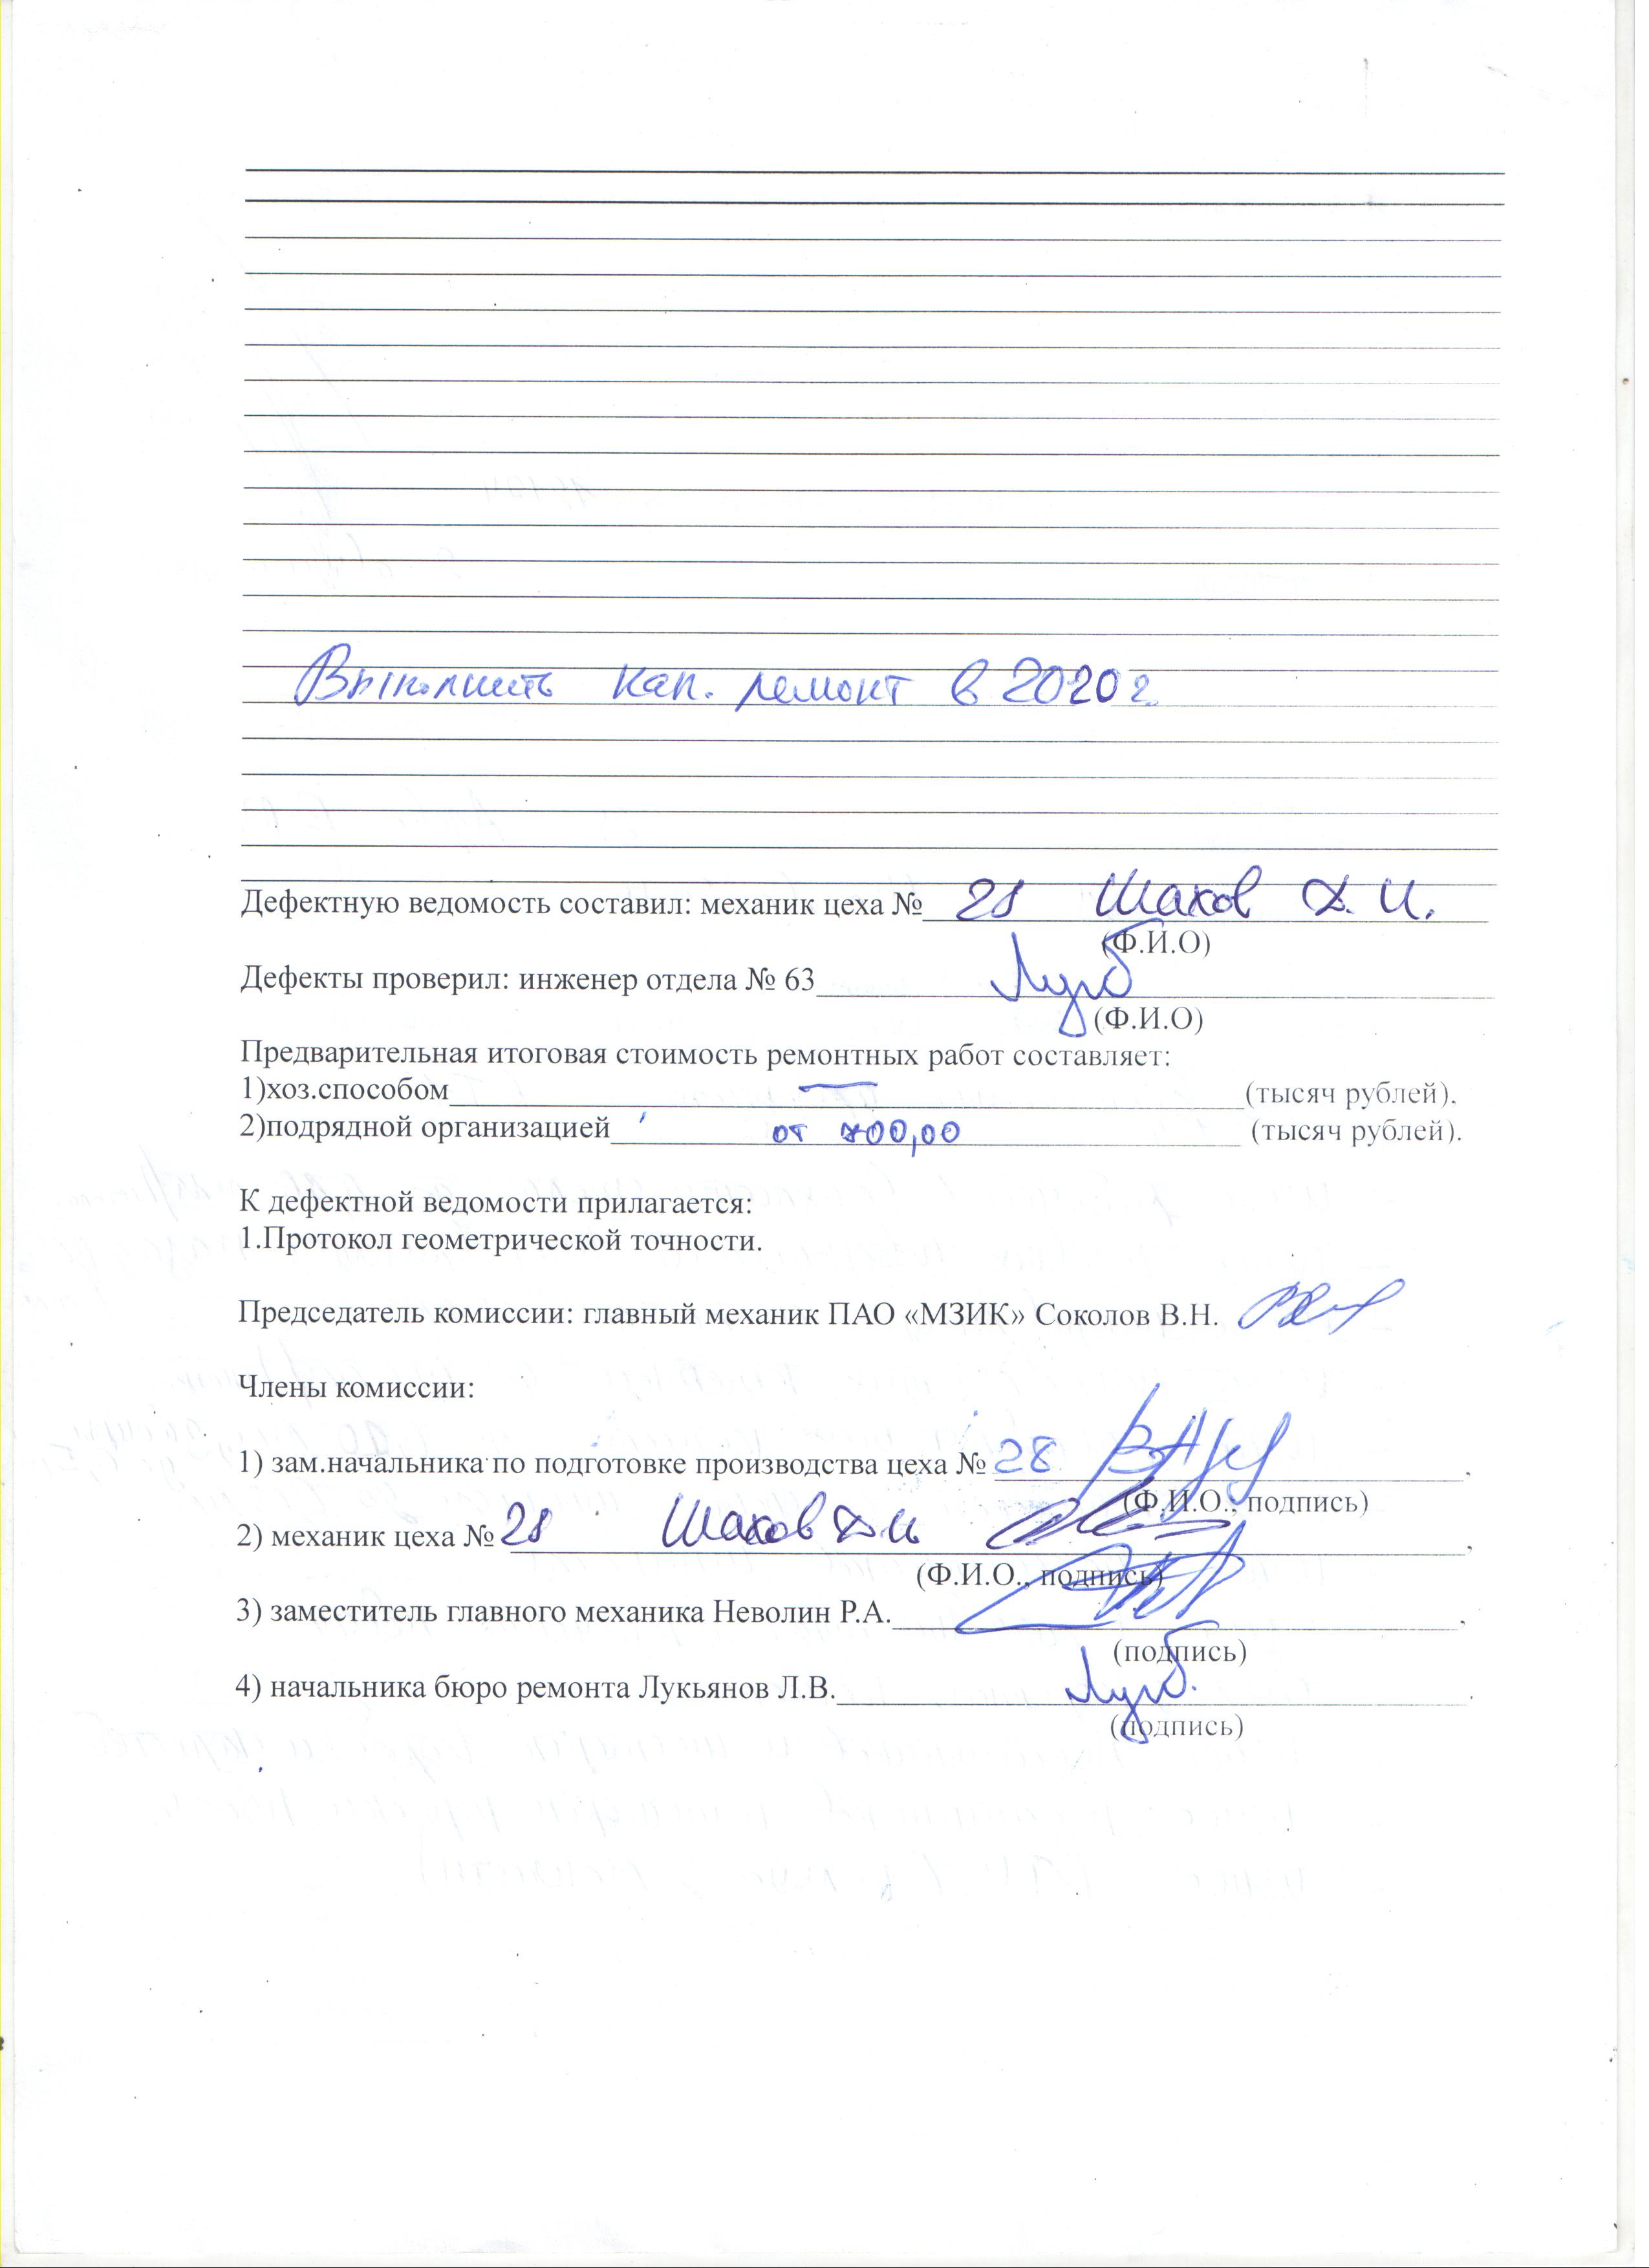 Выполнить кап. ремонт в 2020 г.
Дефектную ведомость составил: механик цеха № 28 Шахов Д. И.
(Ф.И.О)
Дефекты проверил: инженер отдела № 63
(Ф.И.О)
Предварительная итоговая стоимость ремонтных работ составляет:
1)хоз.способом — (тысяч рублей).
2)подрядной организацией от 700,00 (тысяч рублей).
К дефектной ведомости прилагается:
1.Протокол геометрической точности.
Председатель комиссии: главный механик ПАО «МЗИК» Соколов В.Н.
Члены комиссии:
1) зам.начальника по подготовке производства цеха № 28 ,
(Ф.И.О., подпись)
2) механик цеха № 28 Шахов Д И ,
(Ф.И.О., подпись)
3) заместитель главного механика Неволин Р.А. ,
(подпись)
4) начальника бюро ремонта Лукьянов Л.В. .
(подпись)